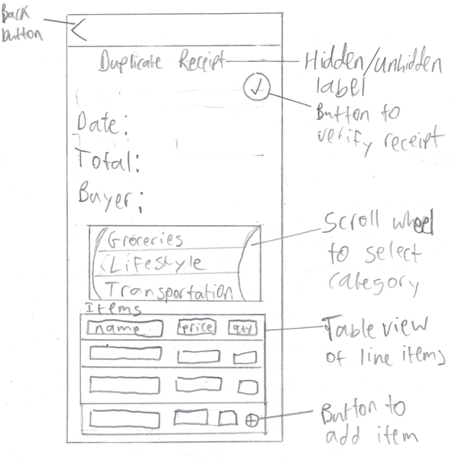 Back
button
Duplicate Receipt
Hidden/unhidden
label
Button to
verify receipt
Date:
Total:
Buyer:
Groceries
Lifestyle
Transportation
Scroll wheel
to select
category
Items
name price qty
Table view
of line items
Button to
add item